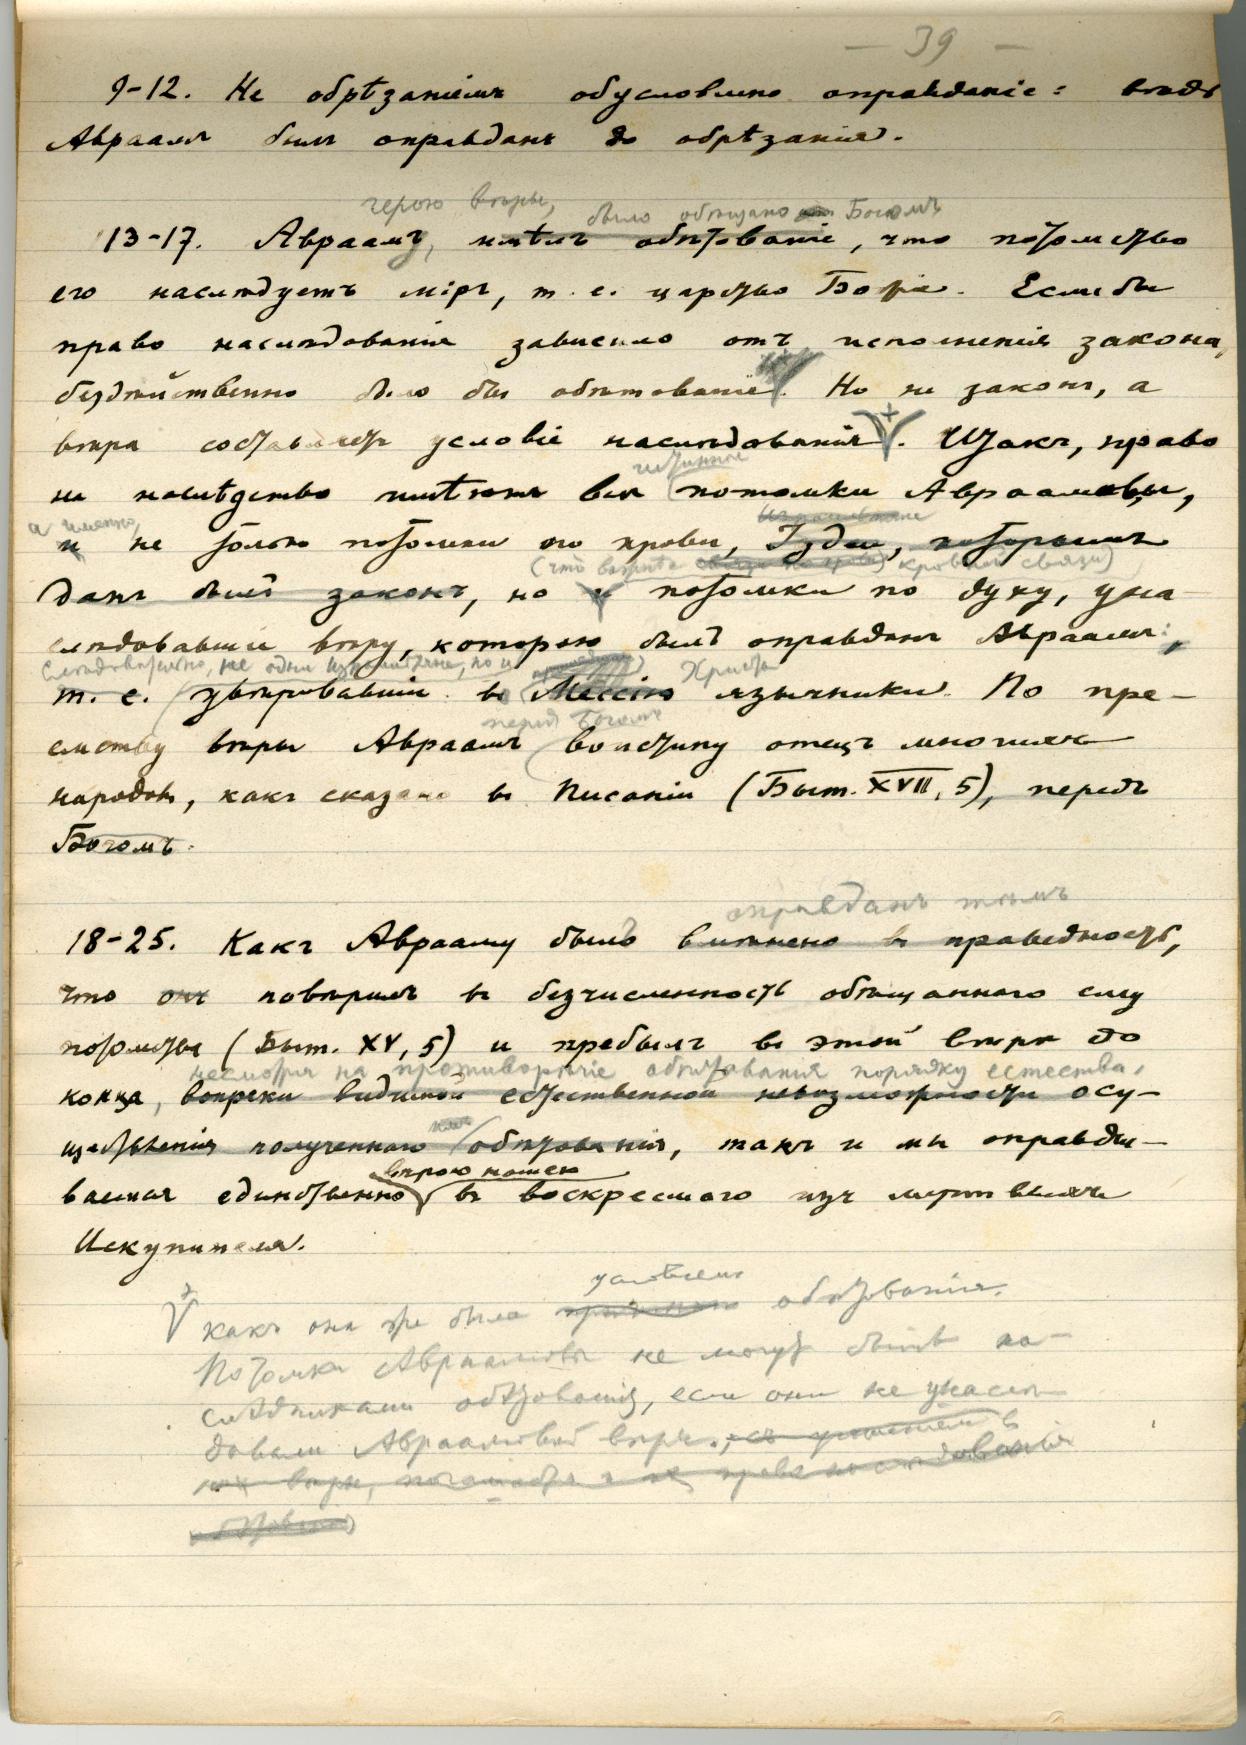 — 39 —
9-12. Не обрѣзаніемъ обусловлено оправданіе: вѣдь
Авраамъ былъ оправданъ до обрѣзанія.
герою вѣры, было обѣщано Богомъ
13-17. Авраамъ, имѣлъ обѣтованіе, что потомство
его наслѣдуетъ міръ, т. е. царство Божіе. Если бы
право наслѣдованія зависѣло отъ исполненія закона,
бездѣйственно было бы обѣтованіе. Но не законъ, а
вѣра составляетъ условіе наслѣдованія. Итакъ, право
истинные
на наслѣдство имѣютъ всѣ потомки Авраамовы,
а именно, Израильтяне
и не только потомки его крови, Іудеи, которымъ
(что кровной связи)
данъ былъ законъ, но и потомки по духу, уна-
слѣдовавшіе вѣру, которою былъ оправданъ Авраамъ;
Слѣдовательно, не одни израильтяне, но и Христа
т. е. увѣровавшіе въ Мессію язычники. По пре-
передъ Богомъ
емству вѣры Авраамъ воистину отецъ многихъ
народовъ, какъ сказано въ Писаніи (Быт. XVII, 5), передъ
Богомъ.
оправданъ тѣмъ
18-25. Какъ Аврааму было вмѣнено въ праведность,
что онъ повѣрилъ въ безчисленность обѣщаннаго ему
потомства (Быт. XV, 5) и пребылъ въ этой вѣрѣ до
несмотря на противорѣчіе обѣтованія порядку естества,
конца, вопреки видимой естественной невозможности осу-
ществленія полученнаго имъ обѣтованія, такъ и мы оправды-
вѣрою нашею
ваемся единственно въ воскресшаго изъ мертвыхъ
Искупителя.
условіемъ
какъ она же была обѣтованія.
Потомки Авраамовы не могутъ быть на-
слѣдниками обѣтованія, если они не унаслѣ-
довали Авраамовой вѣры.